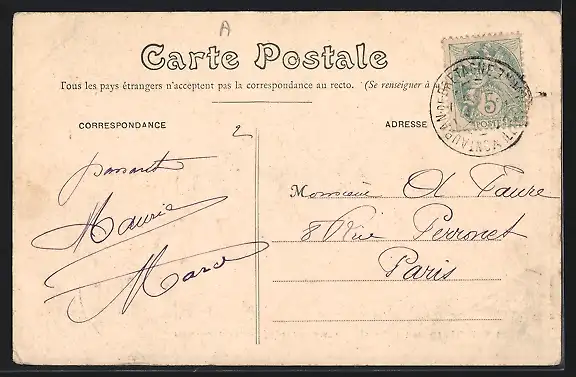 A
Carte Postale
Tous les pays étrangers n'acceptent pas la correspondance au recto. (Se renseigner à la
CORRESPONDANCE
2
ADRESSE
5
Maurice
Marcel
Monsieur A Faure
8 Rue Perronet
Paris